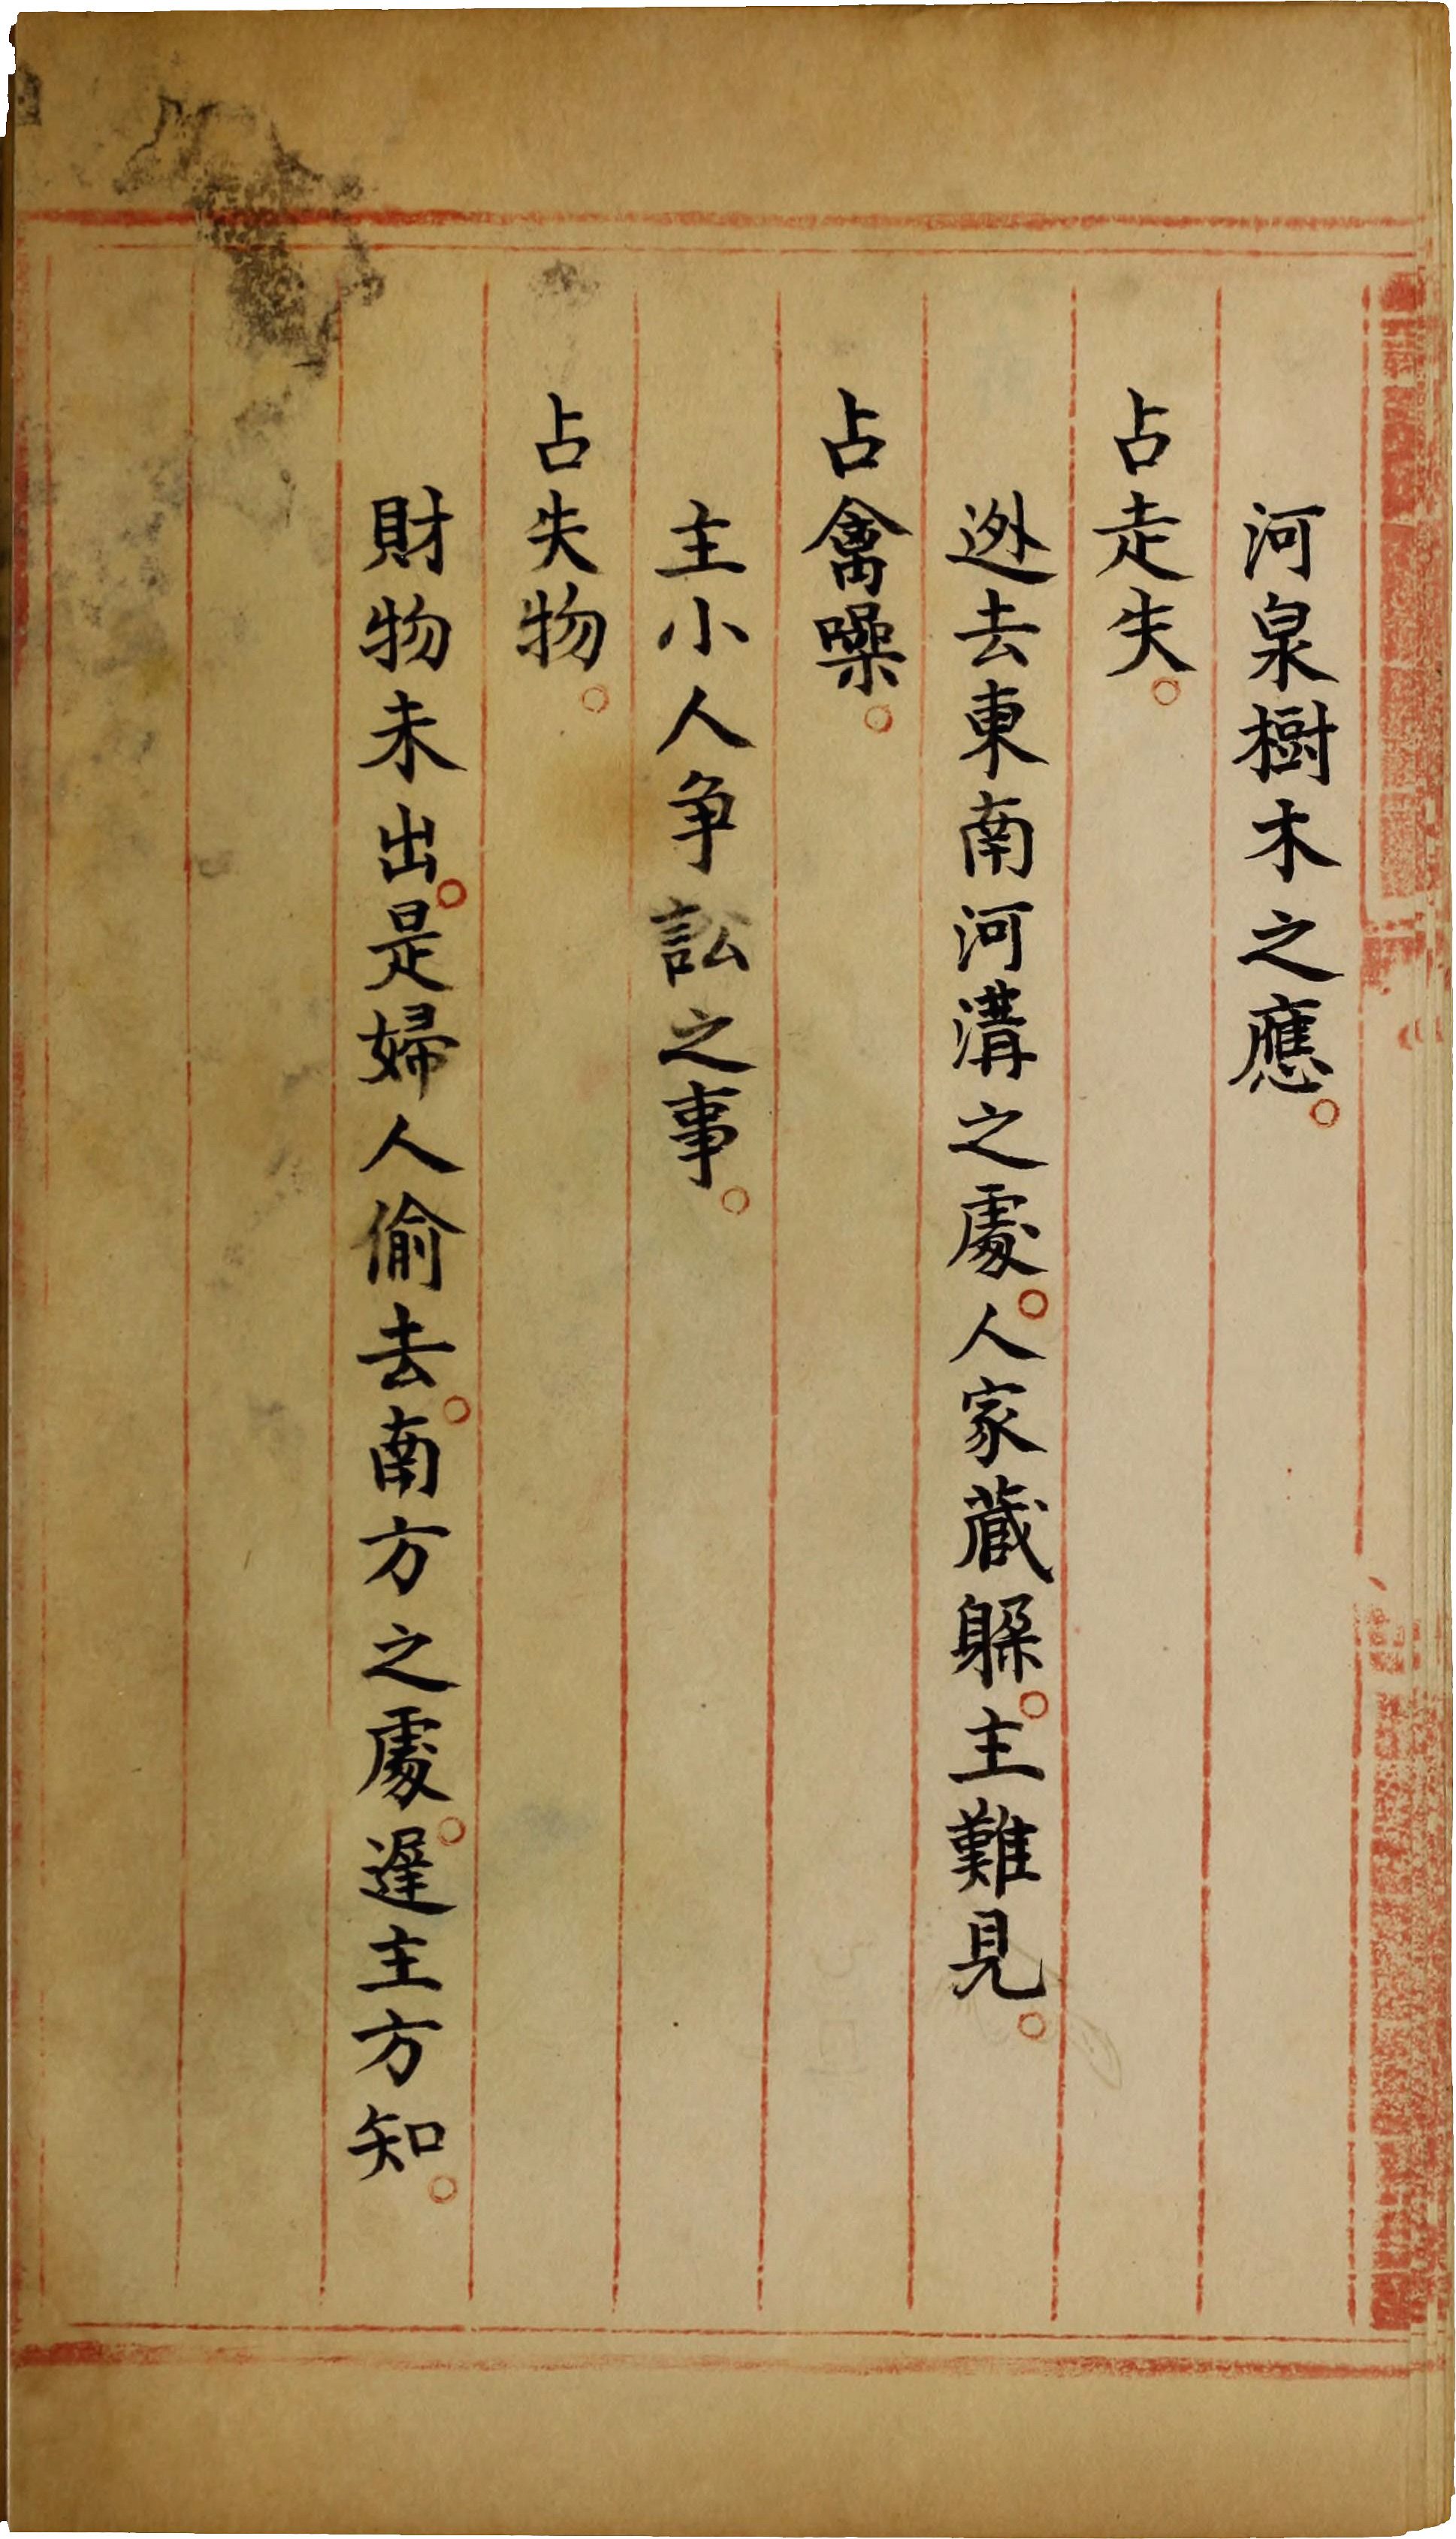 河泉樹木之應。
占走失。
逊去東南河溝之處。人家蔵躱。主難見。
占禽噪。
主小人争訟之事。
占失物。
財物未出。是婦人偷去。南方之處。遲主方知。